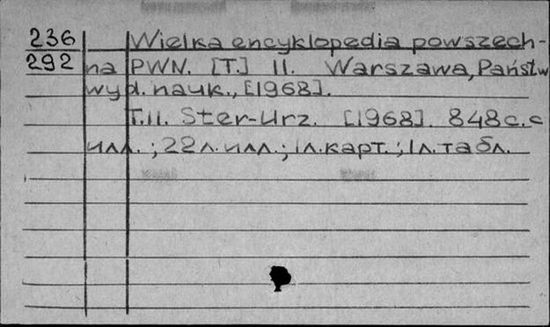 236 Wielka encyklopedia powszech-
292 na PWN. [T.] 11. Warszawa, Państw
wyd. nauk., [1968].
T.11. Ster-Urz. [1968]. 848 с. с
илл.; 22 л. илл.; 1 л. карт.; 1 л. табл.